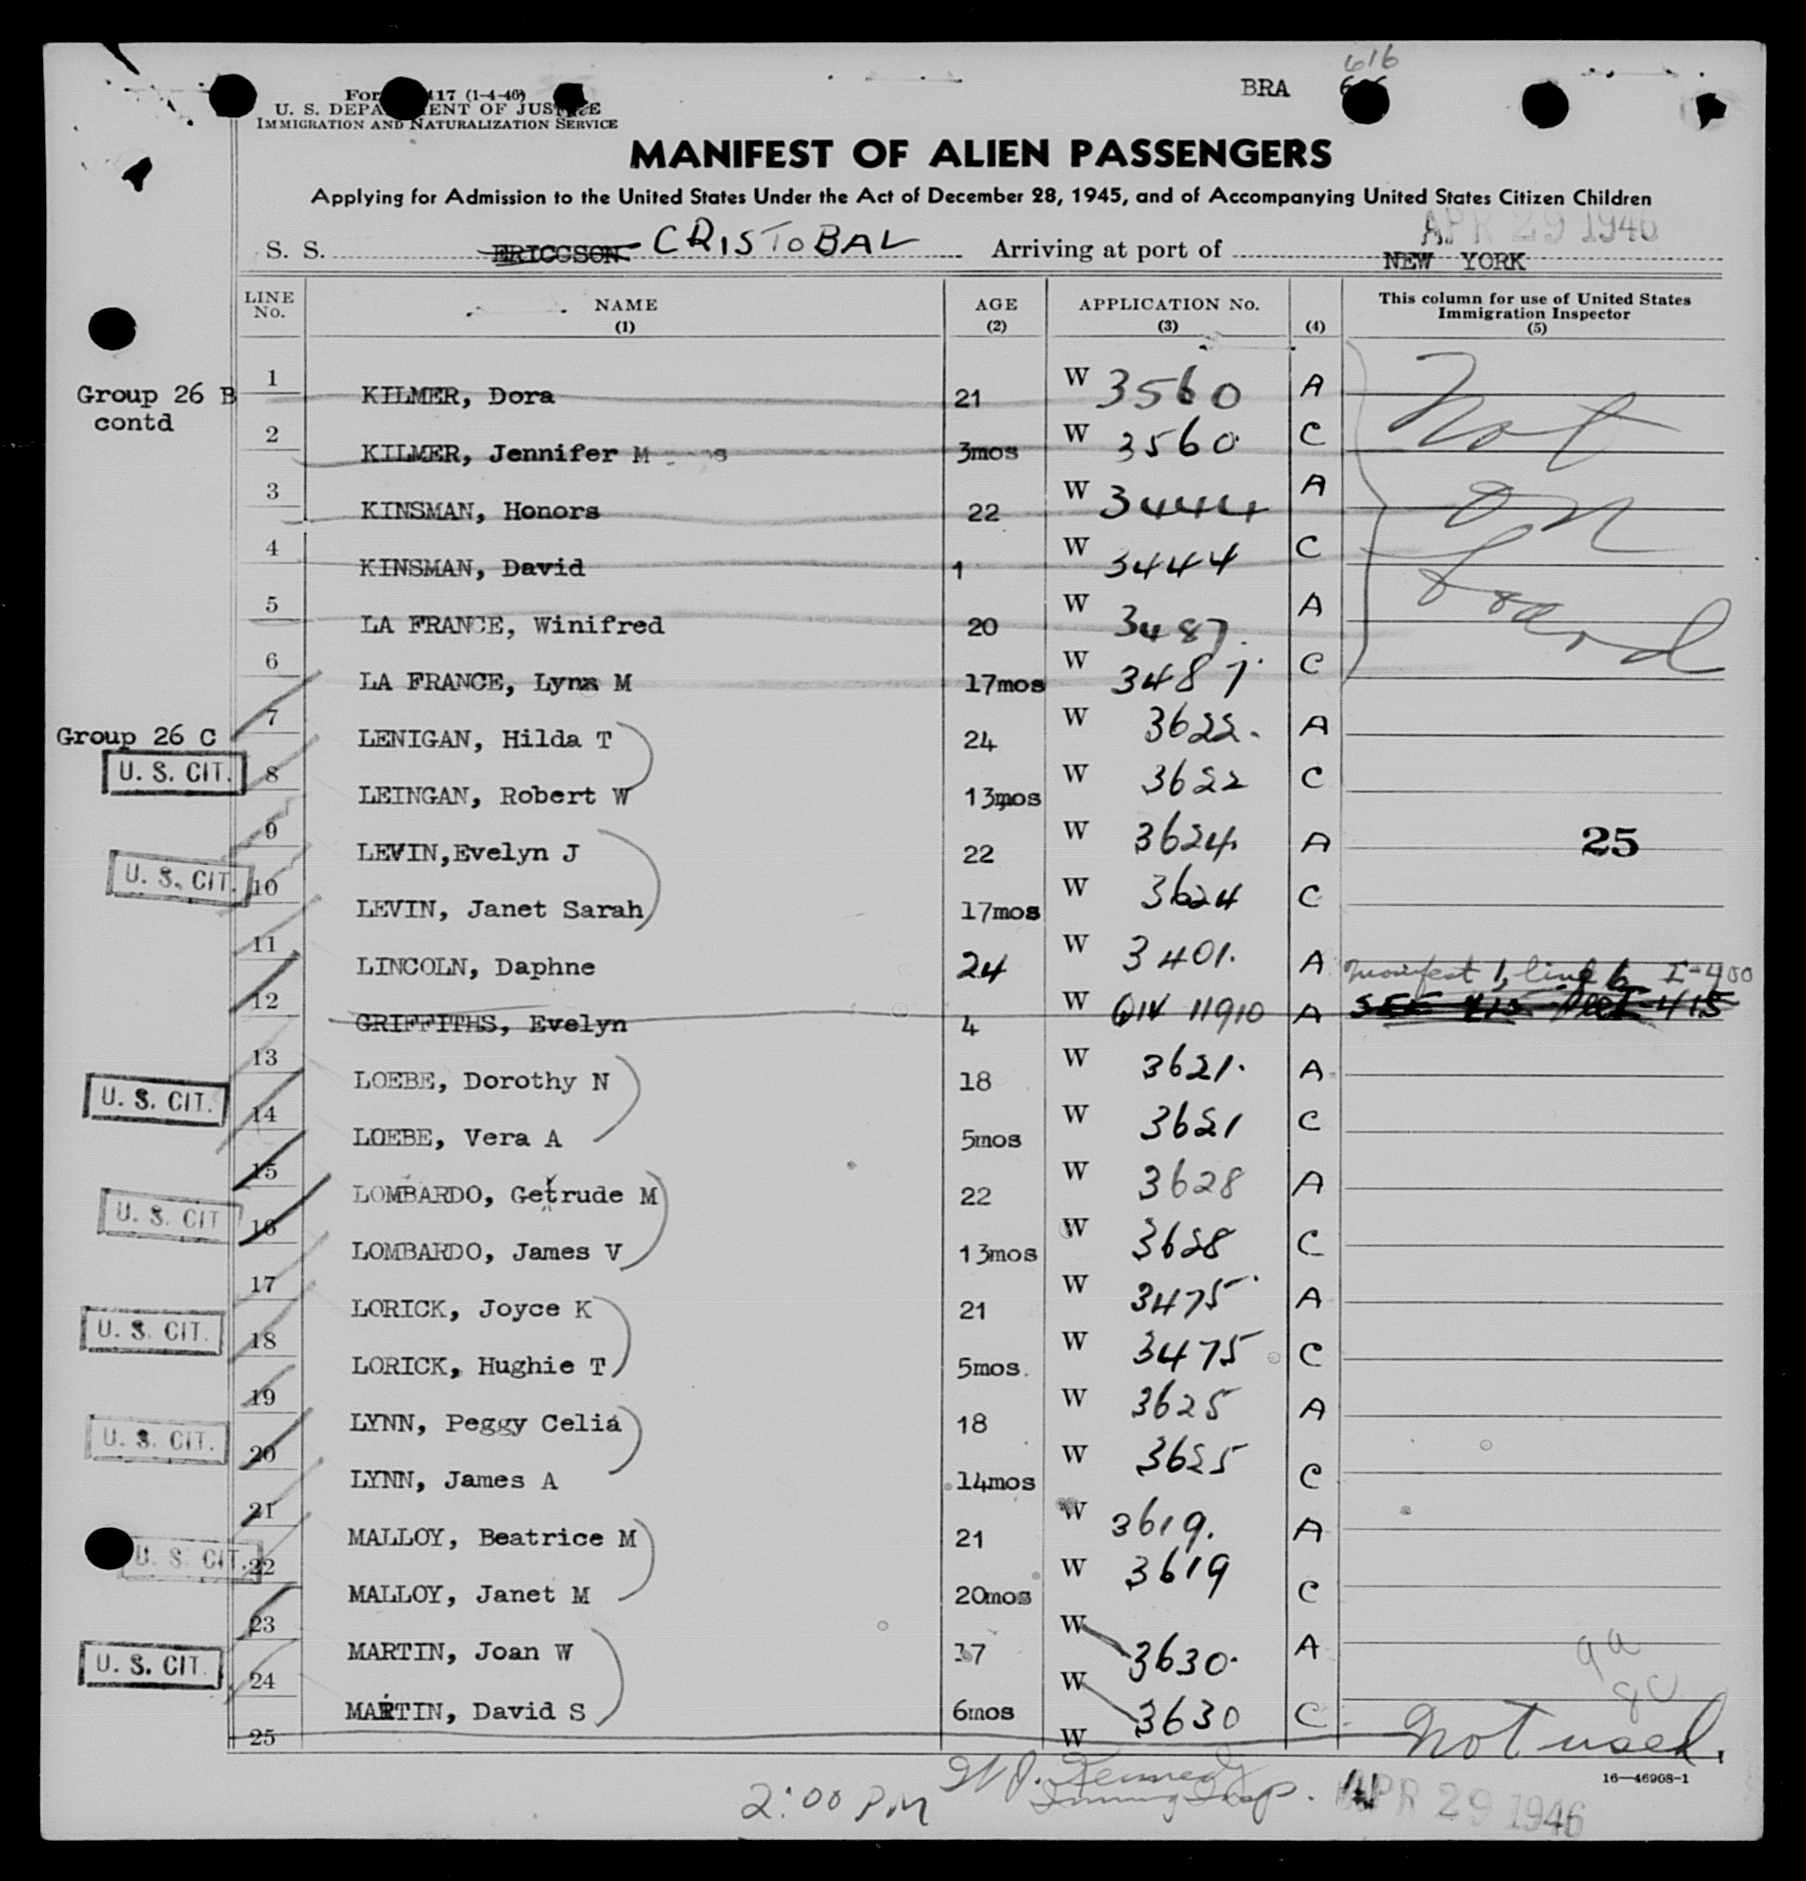 616
BRA
117 (1-4-46)
U. S. DEPARTMENT OF JUSTICE
IMMIGRATION AND NATURALIZATION SERVICE
MANIFEST OF ALIEN PASSENGERS
Applying for Admission to the United States Under the Act of December 28, 1945, and of Accompanying United States Citizen Children
APR 29 1946
S. S. ERICCSON CRISTOBAL Arriving at port of NEW YORK
LINE No. NAME (1) AGE (2) APPLICATION No. (3) (4) This column for use of United States Immigration Inspector (5)
Group 26 B contd
1 KILMER, Dora 21 W 3560 A Not
2 KILMER, Jennifer M 3mos W 3560 C
3 KINSMAN, Honors 22 W 3444 A on
4 KINSMAN, David 1 W 3444 C
5 LA FRANCE, Winifred 20 W 3487. A board
6 LA FRANCE, Lynn M 17mos W 3487 C
Group 26 C
7 LENIGAN, Hilda T 24 W 3622. A
U. S. CIT. 8 LEINGAN, Robert W 13mos W 3622 C
9 LEVIN,Evelyn J 22 W 3624. A 25
U. S. CIT. 10 LEVIN, Janet Sarah 17mos W 3624 C
11 LINCOLN, Daphne 24 W 3401. A manifest 1, line 6 I-400
12 GRIFFITHS, Evelyn 4 W 11910 A SEE 415
13 LOEBE, Dorothy N 18 W 3621. A
U. S. CIT. 14 LOEBE, Vera A 5mos W 3621 C
15 LOMBARDO, Getrude M 22 W 3628 A
U. S. CIT 16 LOMBARDO, James V 13mos W 3628 C
17 LORICK, Joyce K 21 W 3475 A
U. S. CIT. 18 LORICK, Hughie T 5mos. W 3475 C
19 LYNN, Peggy Celia 18 W 3625 A
U. S. CIT. 20 LYNN, James A 14mos W 3625 C
21 MALLOY, Beatrice M 21 W 3619. A
U. S. CIT. 22 MALLOY, Janet M 20mos W 3619 C
23 MARTIN, Joan W 17 W 3630. A 9a
U. S. CIT. 24 MARTIN, David S 6mos W 3630 C 8C
25 W Not used.
16—46908-1
2:00 PM W. J. Kennedy Immig Insp. APR 29 1946